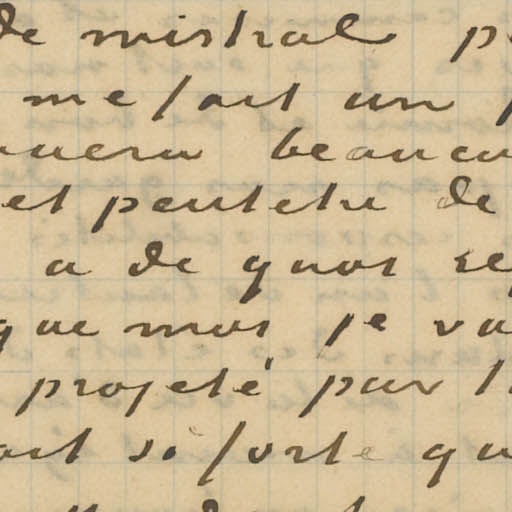 de mistral p
me fait un p
beaucou
et peutetre de
a de quoi se
que moi je va
projeté par l
ait si forte qu